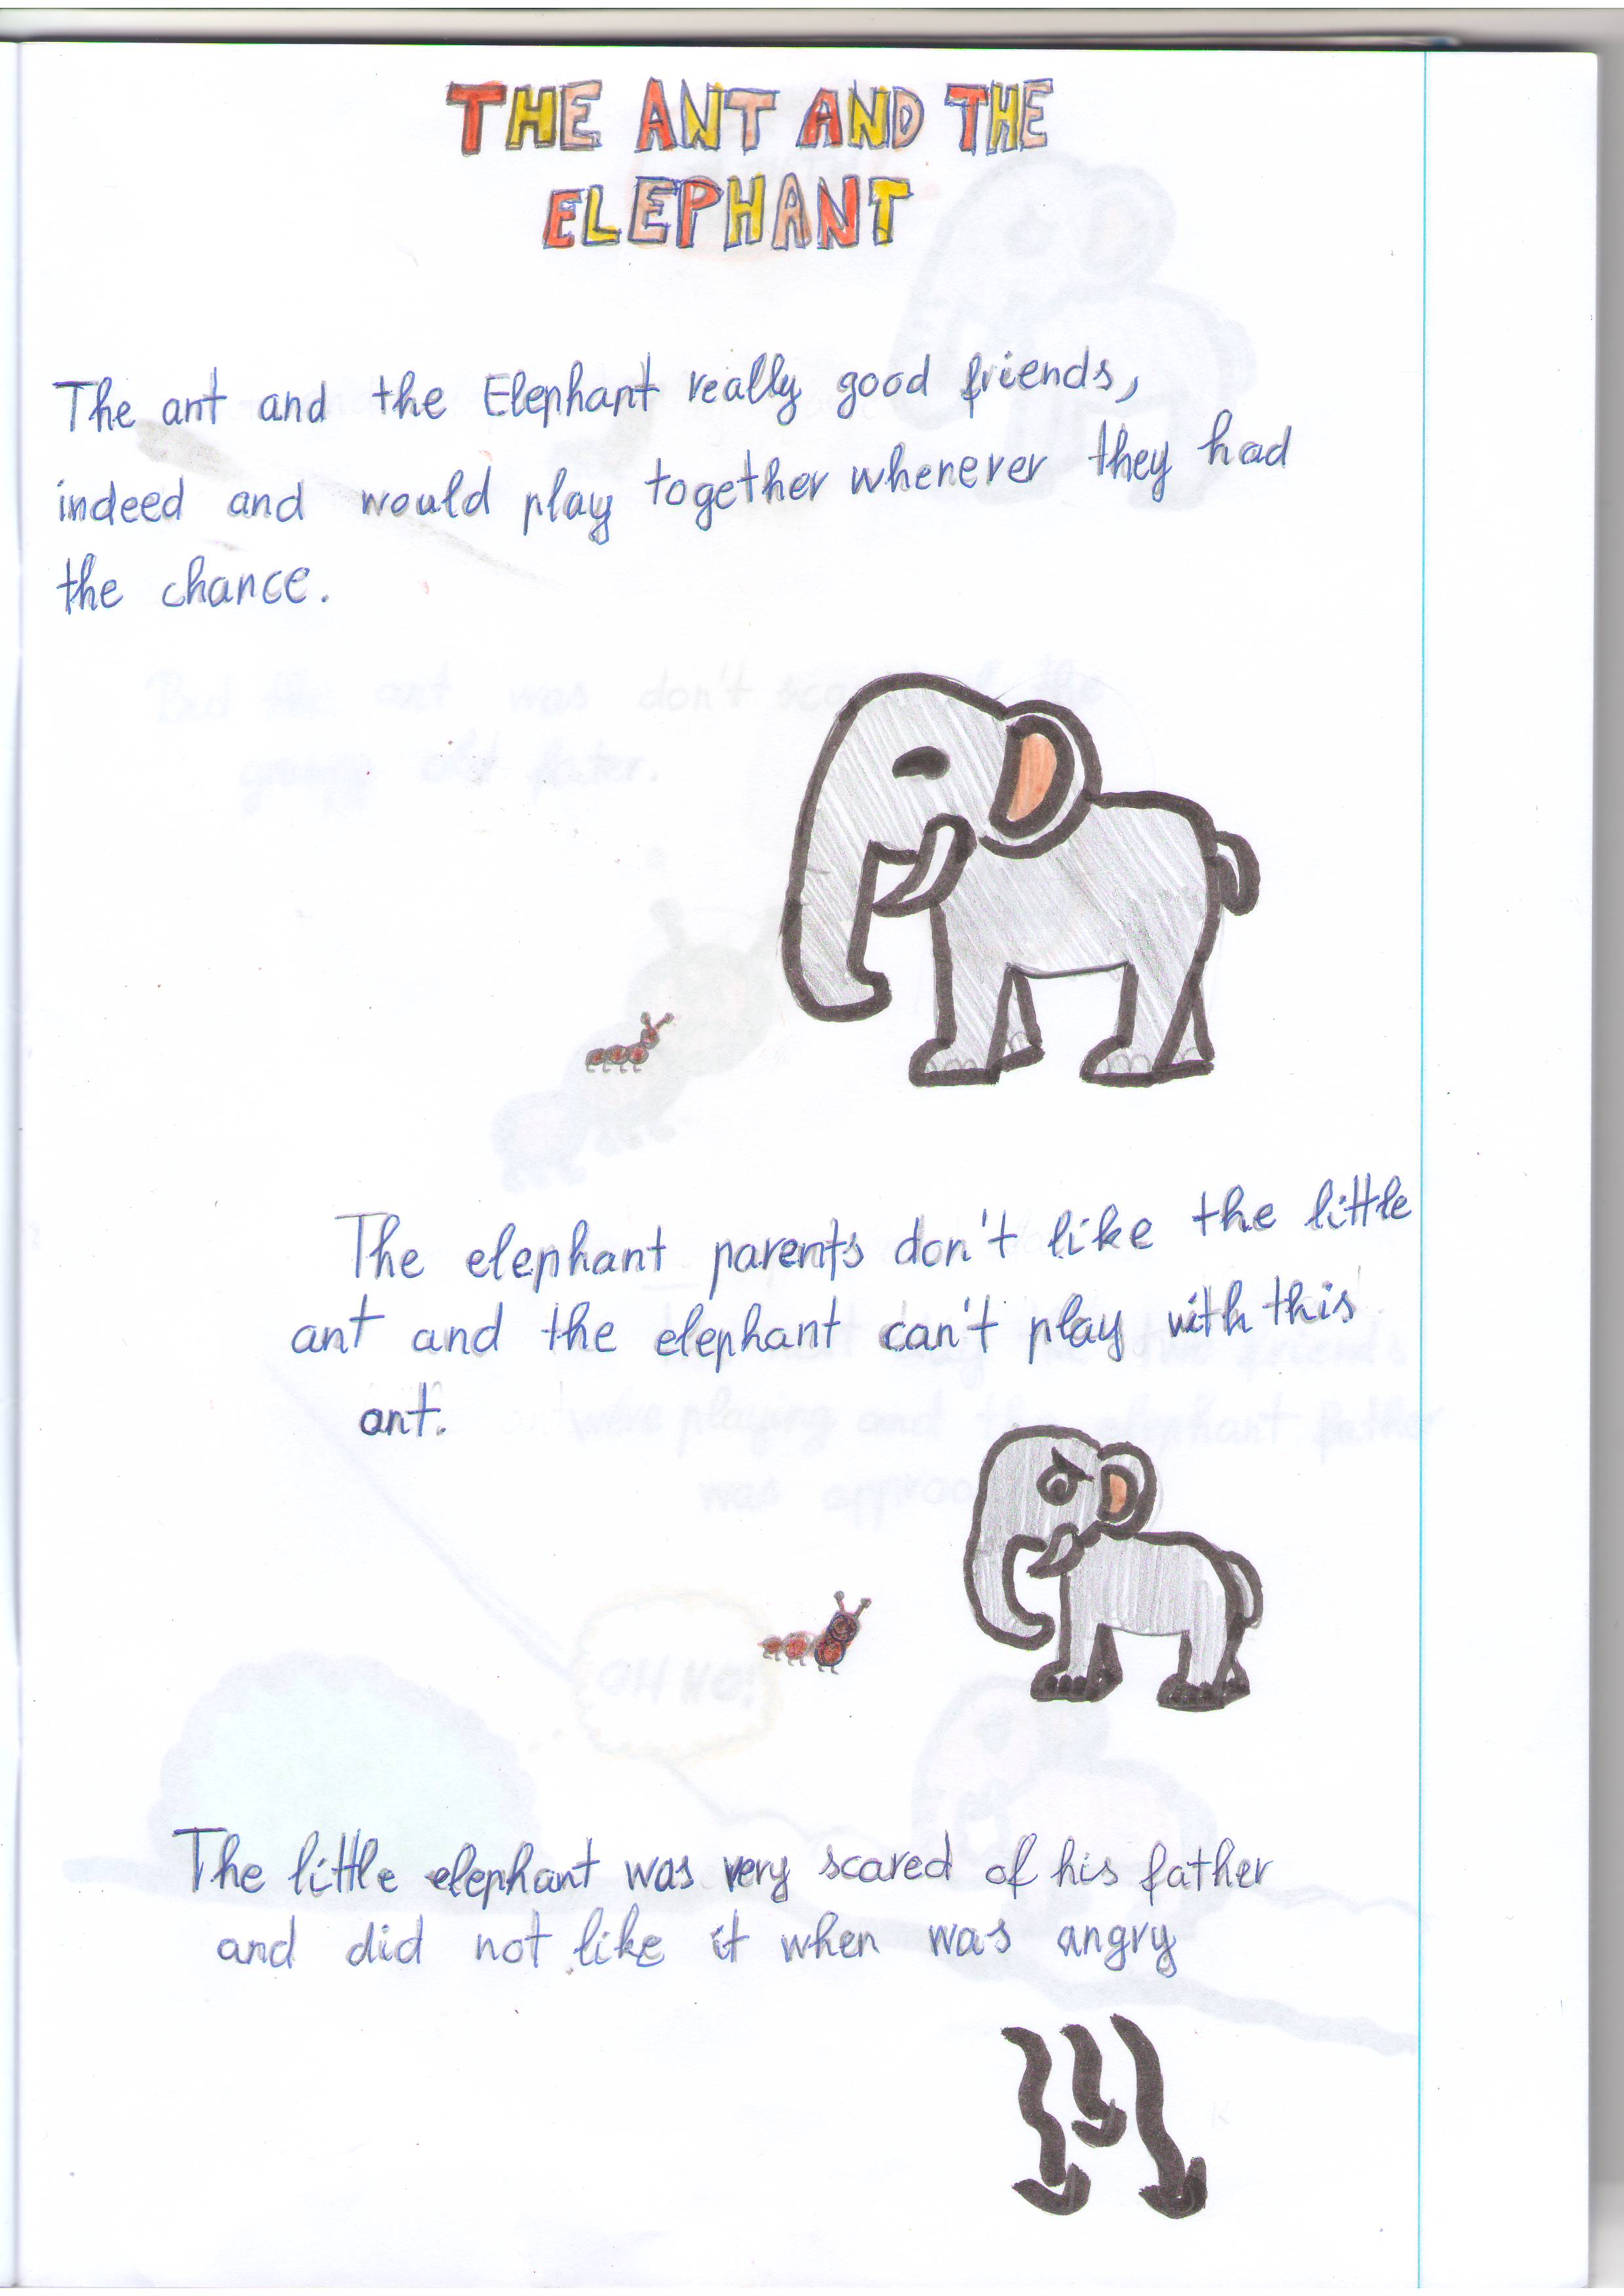 THE ANT AND THE
ELEPHANT
The ant and the Elephant really good friends,
indeed and would play together whenever they had
the chance.
The elephant parents don't like the little
ant and the elephant can't play with this
ant.
The little elephant was very scared of his father
and did not like it when was angry